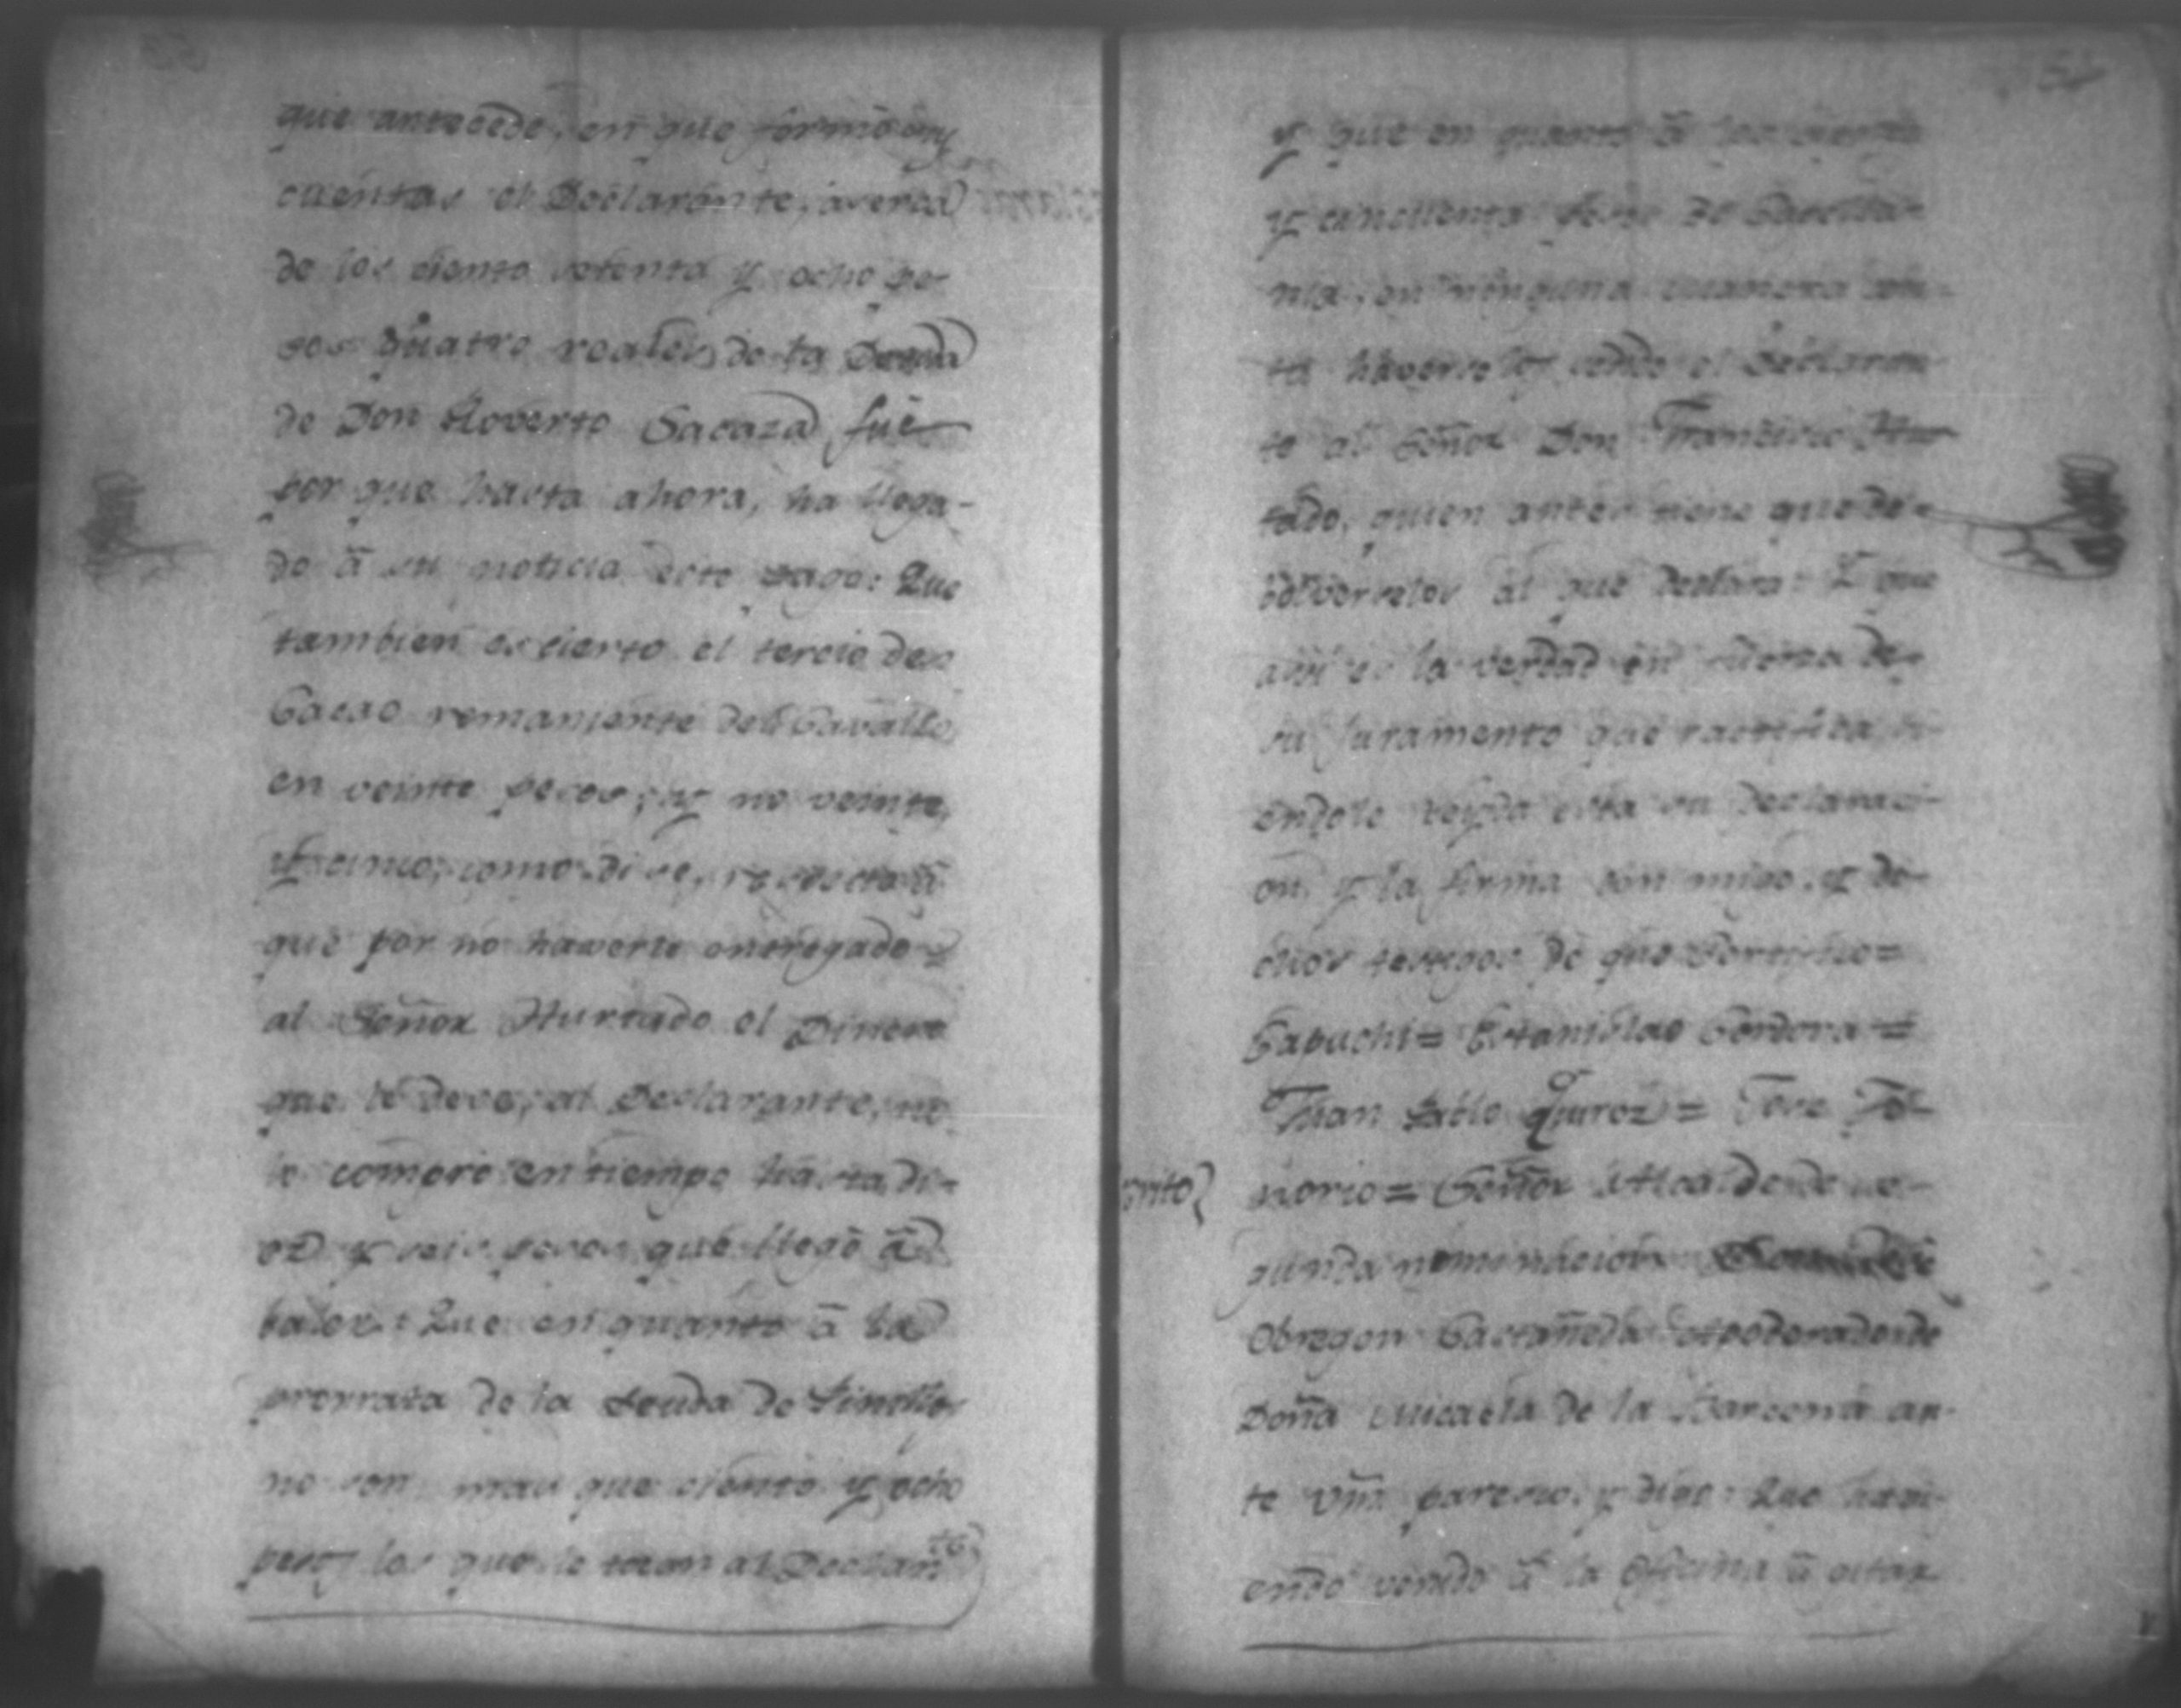 que antecede, en que formó sus
cuentas el Declarante, acerca
de los ciento setenta y ocho pe-
sos quatro reales de la Deuda
de Don Roverto Sacaza fue
por que hasta ahora, ha llega-
do â su noticia este pago: Que
tambien es cierto el tercio de
Cacao remaniente del Cavallo,
en veinte pesos, y no veinte,
y cinco, como dice, respecto â
que por no haverle entregado
al Señor Hurtado el Dinero
que le deve, al Declarante, no
lo compró en tiempo hasta di-
ez y seis pesos que llegó â
baler: Que en quanto â la
prorrata de la Deuda de Pinillos
no son mas que ciento y ocho
pesos los que le tocan al Declarte.
54
y que en quanto â los ciento
y cincuenta pesos de Capella-
nia, en ninguna manera
haverselos el Declaran-
te al Señor Don Francisco Hur-
tado, quien antes tiene que de-
bolverselos al que declara: Y que
asi es la verdad en fuerza de
su juramento que ractifica, si-
endole leyda esta su declaraci-
on, y la firma con migo, y di-
chos testigos de que Sertifico=
Capuchi= Estanislao Cordova=
Juan Pablo Quiroz= Jose Te-
norio= Señor Alcalde de se-
gunda nominacion
Obregon Castañeda Apoderado de
Doña Micaela de la Barcena an-
te Vm̃. paresco, y digo: Que havi-
endo venido â la Oficina â citar